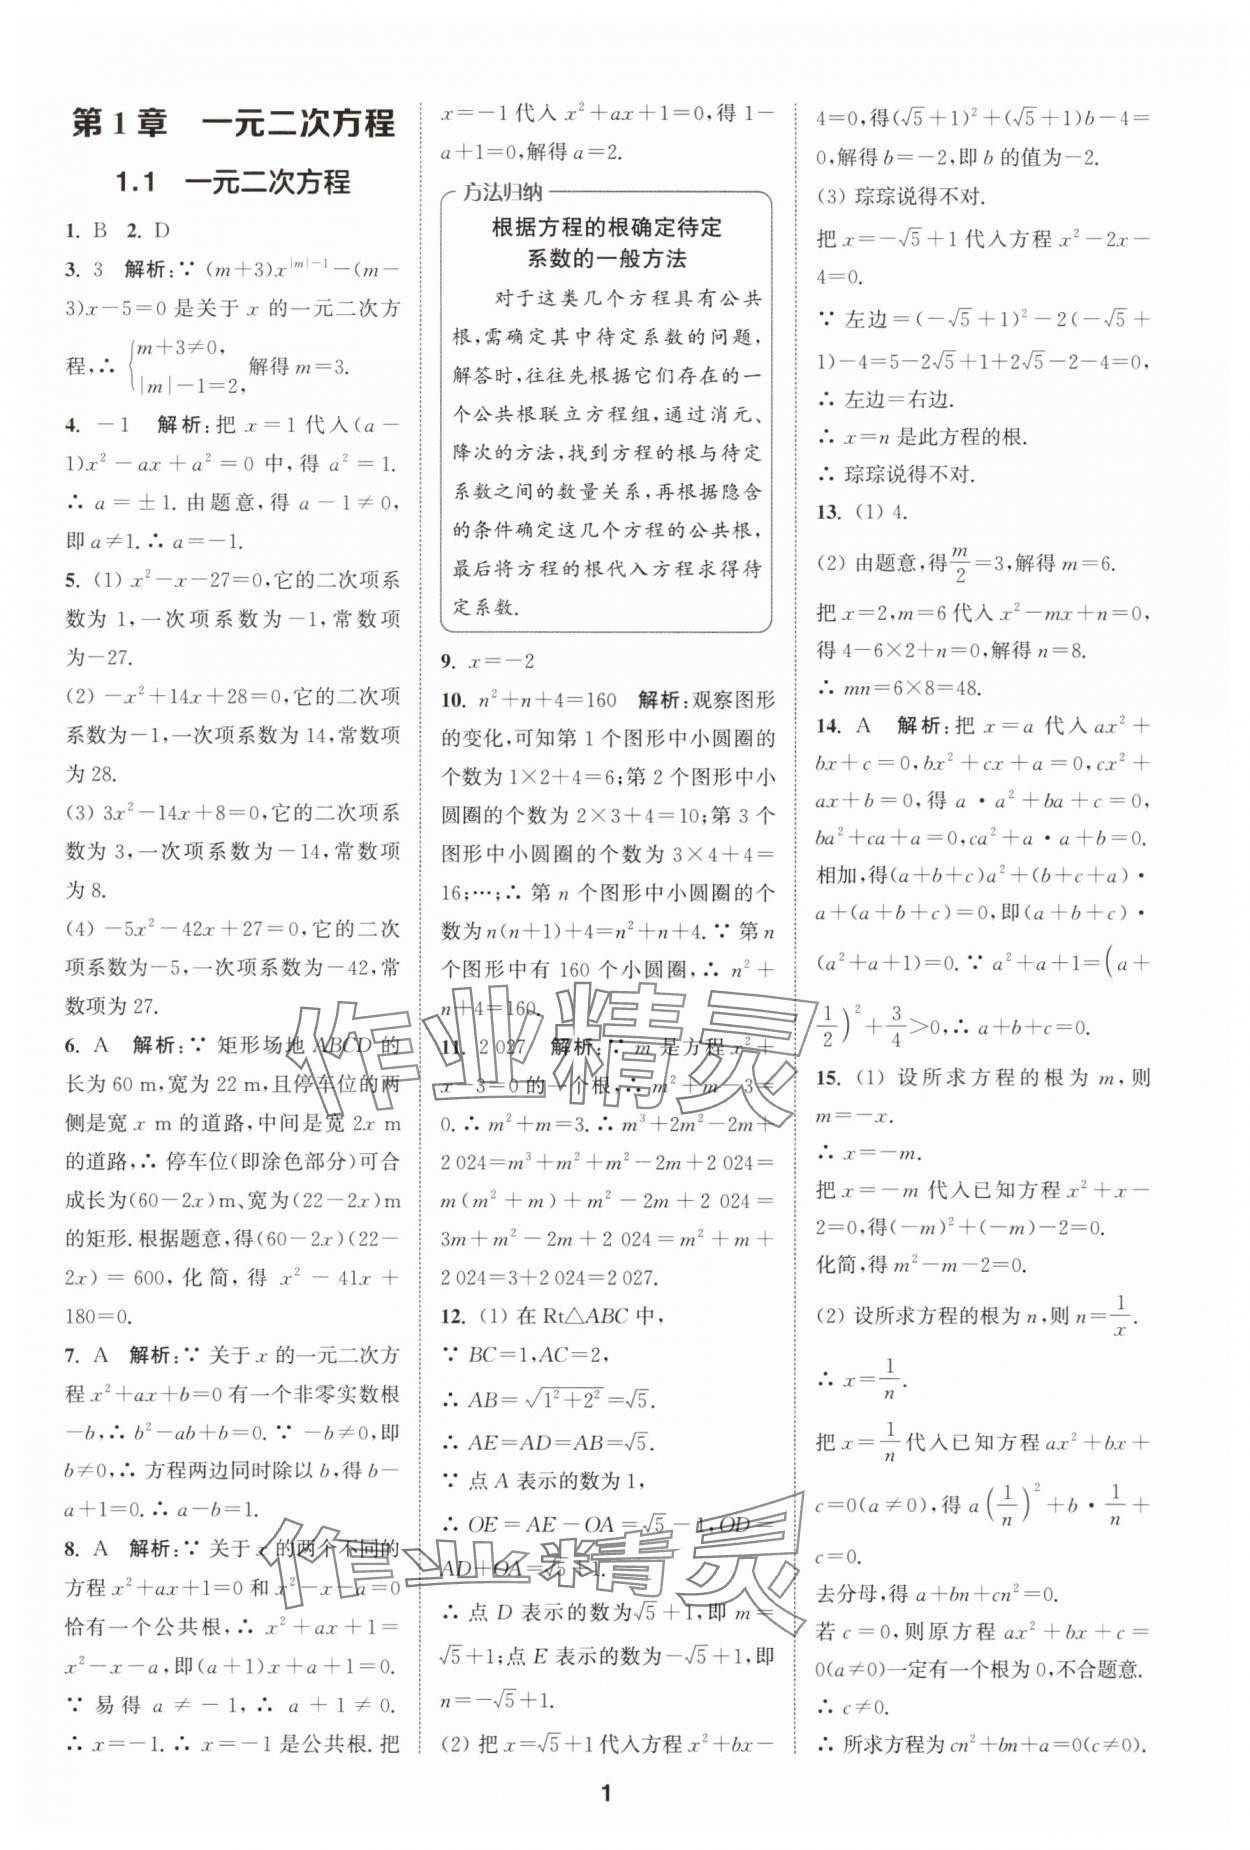 第1章 一元二次方程
1.1 一元二次方程
1. B 2. D
3. 3 解析:∵ (m+3)x^{|m|-1}-(m-
3)x-5=0是关于 x 的一元二次方
程,∴ {m+3≠0, |m|-1=2, 解得m=3.
4. -1 解析:把 x=1 代入(a-
1)x²-ax+a²=0 中,得 a²=1.
∴ a=±1.由题意,得 a-1≠0,
即a≠1.∴ a=-1.
5. (1) x²-x-27=0,它的二次项系
数为 1,一次项系数为-1,常数项
为-27.
(2) -x²+14x+28=0,它的二次项
系数为-1,一次项系数为14,常数项
为28.
(3) 3x²-14x+8=0,它的二次项系
数为 3,一次项系数为-14,常数项
为8.
(4) -5x²-42x+27=0,它的二次
项系数为-5,一次项系数为-42,常
数项为27.
6. A 解析:∵ 矩形场地 ABCD 的
长为60 m,宽为22 m,且停车位的两
侧是宽 x m的道路,中间是宽 2x m
的道路,∴ 停车位(即涂色部分)可合
成长为(60-2x)m、宽为(22-2x)m
的矩形.根据题意,得(60-2x)(22-
2x)=600,化简,得 x²-41x+
180=0.
7. A 解析:∵ 关于x的一元二次方
程x²+ax+b=0有一个非零实数根
-b,∴ b²-ab+b=0.∵ -b≠0,即
b≠0,∴ 方程两边同时除以b,得b-
a+1=0.∴ a-b=1.
8. A 解析:∵ 关于x的两个不同的
方程x²+ax+1=0和x²-x-a=0
恰有一个公共根,∴ x²+ax+1=
x²-x-a,即(a+1)x+a+1=0.
∵ 易得 a≠-1,∴ a+1≠0.
∴ x=-1.∴ x=-1是公共根.把
x=-1代入 x²+ax+1=0,得1-
a+1=0,解得a=2.
方法归纳
根据方程的根确定待定
系数的一般方法
对于这类几个方程具有公共
根,需确定其中待定系数的问题,
解答时,往往先根据它们存在的一
个公共根联立方程组,通过消元、
降次的方法,找到方程的根与待定
系数之间的数量关系,再根据隐含
的条件确定这几个方程的公共根,
最后将方程的根代入方程求得待
定系数.
9. x=-2
10. n²+n+4=160 解析:观察图形
的变化,可知第 1 个图形中小圆圈的
个数为1×2+4=6;第 2 个图形中小
圆圈的个数为2×3+4=10;第 3 个
图形中小圆圈的个数为3×4+4=
16;…;∴ 第 n 个图形中小圆圈的个
数为n(n+1)+4=n²+n+4.∵ 第n
个图形中有 160 个小圆圈,∴ n²+
n+4=160.
11. 2 027 解析:∵ m 是方程 x²+
x-3=0的一个根,∴ m²+m-3=
0.∴ m²+m=3.∴ m³+2m²-2m+
2 024=m³+m²+m²-2m+2 024=
m(m²+m)+m²-2m+2 024=
3m+m²-2m+2 024=m²+m+
2 024=3+2 024=2 027.
12. (1) 在Rt△ABC中,
∵ BC=1,AC=2,
∴ AB=√(1²+2²)=√5.
∴ AE=AD=AB=√5.
∵ 点A表示的数为1,
∴ OE=AE-OA=√5-1,OD=
AD+OA=√5+1.
∴ 点 D 表示的数为√5+1,即 m=
√5+1;点E表示的数为-√5+1,即
n=-√5+1.
(2) 把x=√5+1代入方程x²+bx-
4=0,得(√5+1)²+(√5+1)b-4=
0,解得b=-2,即b的值为-2.
(3) 琮琮说得不对.
把x=-√5+1代入方程 x²-2x-
4=0.
∵ 左边=(-√5+1)²-2(-√5+
1)-4=5-2√5+1+2√5-2-4=0,
∴ 左边=右边.
∴ x=n是此方程的根.
∴ 琮琮说得不对.
13. (1) 4.
(2) 由题意,得m/2=3,解得m=6.
把x=2,m=6代入x²-mx+n=0,
得4-6×2+n=0,解得n=8.
∴ mn=6×8=48.
14. A 解析:把 x=a 代入ax²+
bx+c=0,bx²+cx+a=0,cx²+
ax+b=0,得 a·a²+ba+c=0,
ba²+ca+a=0,ca²+a·a+b=0.
相加,得(a+b+c)a²+(b+c+a)·
a+(a+b+c)=0,即(a+b+c)·
(a²+a+1)=0.∵ a²+a+1=(a+
1/2)²+3/4>0,∴ a+b+c=0.
15. (1) 设所求方程的根为 m,则
m=-x.
∴ x=-m.
把x=-m 代入已知方程x²+x-
2=0,得(-m)²+(-m)-2=0.
化简,得m²-m-2=0.
(2) 设所求方程的根为n,则n=1/x.
∴ x=1/n.
把x=1/n代入已知方程ax²+bx+
c=0(a≠0),得 a(1/n)²+b·1/n+
c=0.
去分母,得a+bn+cn²=0.
若 c=0,则原方程 ax²+bx+c=
0(a≠0)一定有一个根为0,不合题意.
∴ c≠0.
∴ 所求方程为cn²+bn+a=0(c≠0).
作业精灵
作业精灵
1